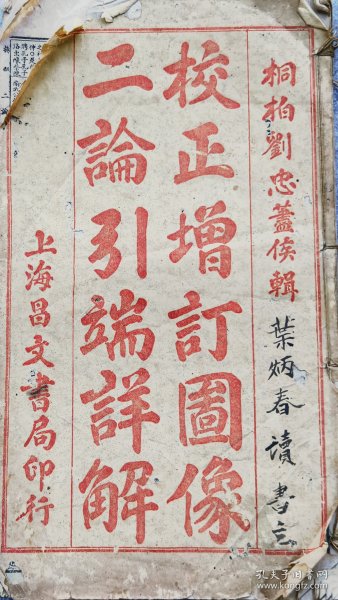 桐柏劉忠藎侯輯
葉炳春讀書立
校正增訂圖像
二論引端詳解
上海昌文書局印行
孔夫子旧书网